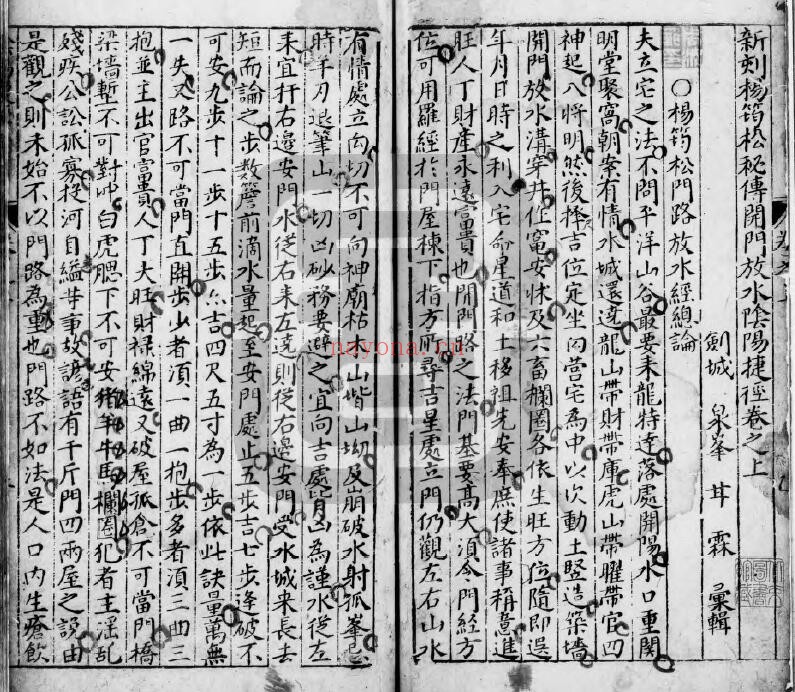 新刻楊筠松祕傳開門放水陰陽捷徑卷之上
劍城 泉峯 甘霖 彙輯
○楊筠松門路放水經總論
夫立宅之法不問平洋山谷最要來龍特達落處開陽水口重関
明堂聚窩朝案有情水城還遶龍山帶財帶庫虎山帶曜帶官四
神起八將明然後擇吉位定坐向營宅為中以次動土竪造築墻
開門放水溝穿井作竈安床及六畜欄圈各依生旺方位隨即選
年月日時之利入宅命星道和土移祖先安奉庶使諸事稱意進
旺人丁財產永遠富貴也開門路之法門基要高大須令門經方
位可用羅經於門屋棟下指方所尋吉星處立門仍觀左右山水
有情處立向切不可向神廟枯木山塔山坳及崩破水射孤峯忌
時羊刃退筆山一切凶砂務要避之宜向吉處背凶為謹水從左
来宜扦右邊安門水從右来左遶則從右邊安門受水城来長去
短而論之步数簷前滴水量起至安門處止五步吉七步逢破不
可安九步十一步十五步六吉四尺五寸為一步依此訣量萬無
一失又路不可當門直開步少者須一曲一抱步多者須三曲三
抱並主出官富貴人丁大旺財禄綿遠又破屋孤倉不可當門橋
梁墻塹不可對冲白虎腮下不可安猪羊牛馬欄圈犯者主淫乱
殘疾公訟孤寡投河自縊䒭事故諺語有千斤門四兩屋之說由
是觀之則未始不以門路為重也門路不如法是人口内生瘡飲
nayona.cn